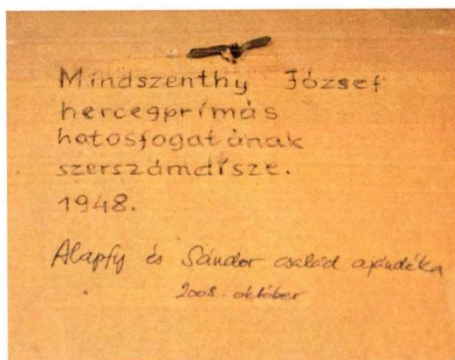 Mindszenthy József
hercegprímás
hatosfogatának
szerszámdísze.
1948.
Alapfy és Sándor család ajándéka
2008. október